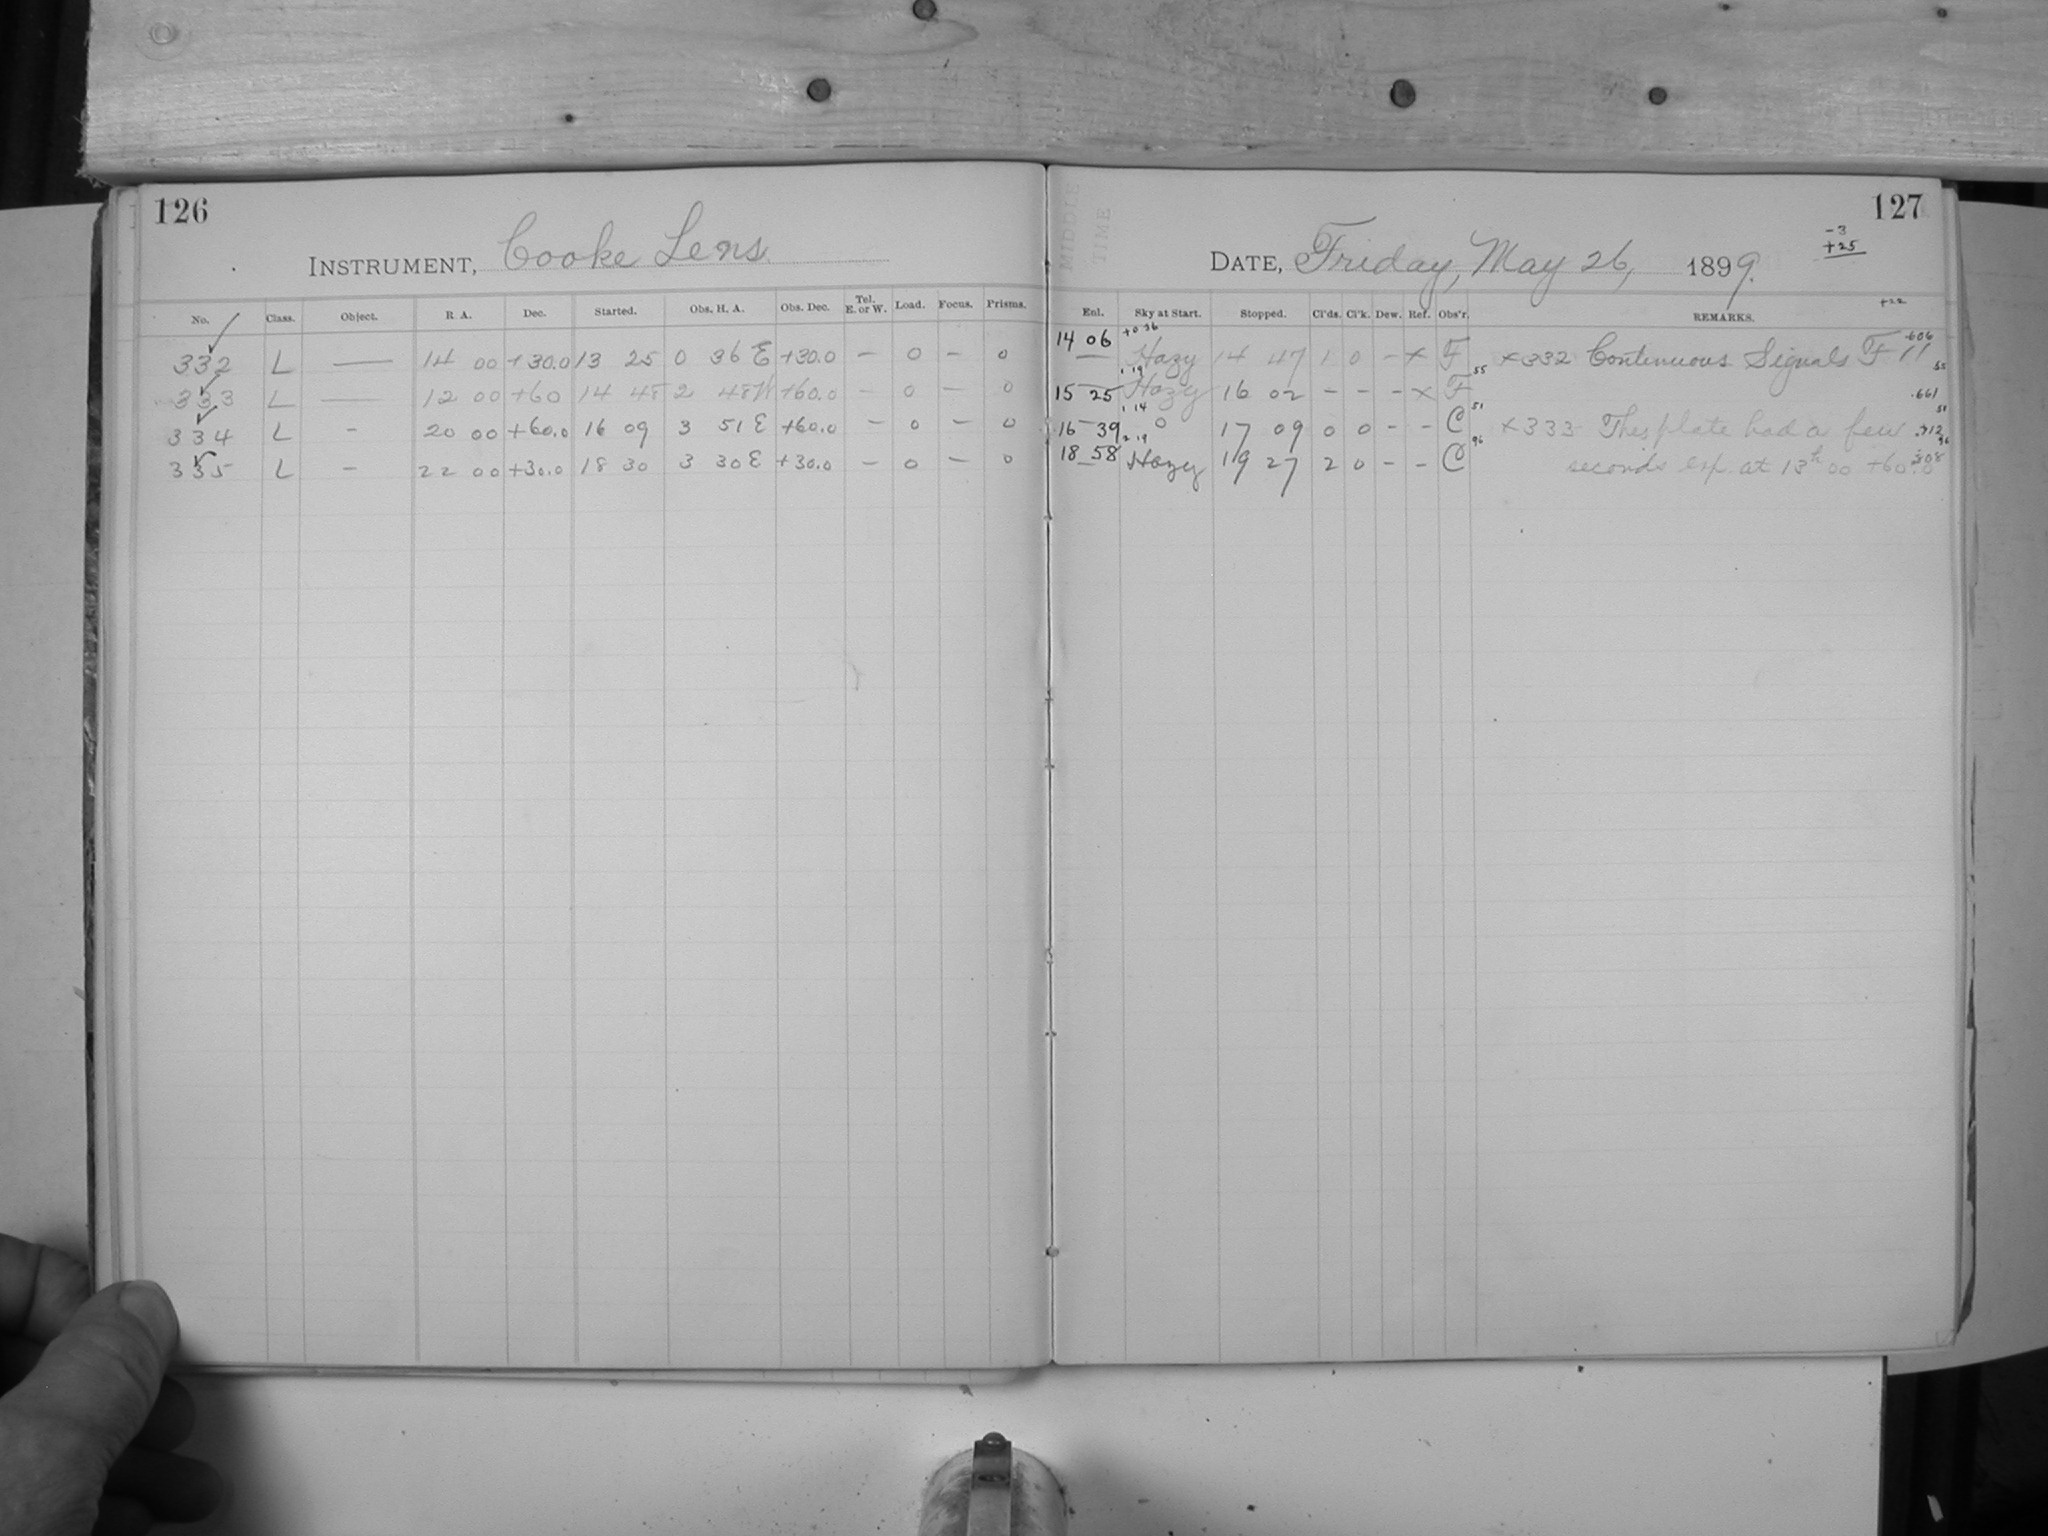 126
INSTRUMENT, Cooke Lens.
No. Class. Object. R. A. Dec. Started. Obs. H. A. Obs. Dec. Tel. E. or W. Load. Focus. Prisms.
332 L — 14 00 +30.0 13 25 0 36 E +30.0 — 0 — 0
333 L — 12 00 +60 14 48 2 48 W +60.0 — 0 — 0
334 L - 20 00 +60.0 16 09 3 51 E +60.0 — 0 — 0
335 L - 22 00 +30.0 18 30 3 30 E +30.0 — 0 — 0
MIDDLE
TIME
127
-3
+25
DATE, Friday, May 26, 1899.
+22
Enl. Sky at Start. Stopped. Cl'ds. Cl'k. Dew. Ref. Obs'r. REMARKS.
14 06 +0 36 — Hazy 14 47 1 0 - x F x332 Continuous Signals F 11 .606
15 25 1 19 Hazy 16 02 - - - x F 55 .661 55
16 39 1 14 0 17 09 0 0 - - C 51 x333 This plate had a few .712 51
18 58 2 19 Hazy 19 27 2 0 - - C 96 seconds exp at 13h 00 +60.0 .808 96